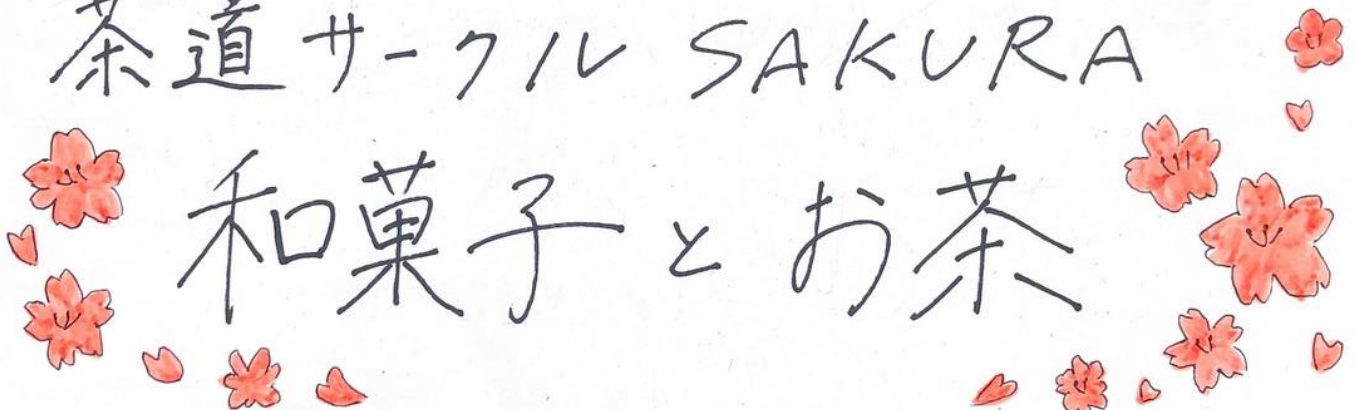 茶道サークル SAKURA
和菓子とお茶